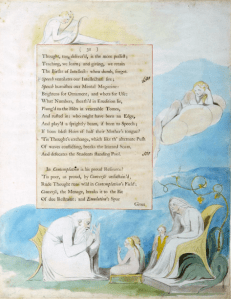 [ 30 ]
Thought, too, deliver'd, is the more possest;
Teaching, we learn; and giving, we retain
The Births of Intellect; when dumb, forgot.
Speech ventilates our Intellectual fire;
Speech burnishes our Mental Magazine:
Brightens for Ornament; and whets for Use.
What Numbers, sheath'd in Erudition lie,
Plung'd to the Hilts in venerable Tomes,
And rusted in; who might have borne an Edge,
And play'd a sprightly Beam, if born to Speech;
If born blest Heirs of half their Mother's tongue!
'Tis Thought's exchange, which like th' alternate Push
Of waves conflicting, breaks the learned Scum,
And defecates the Students standing Pool.
In Contemplation is his proud Resource?
'Tis poor, as proud, by Converse unsustain'd;
Rude Thought runs wild in Contemplation's Field;
Converse, the Menage, breaks it to the Bit
Of due Restraint; and Emulation's Spur
Gives